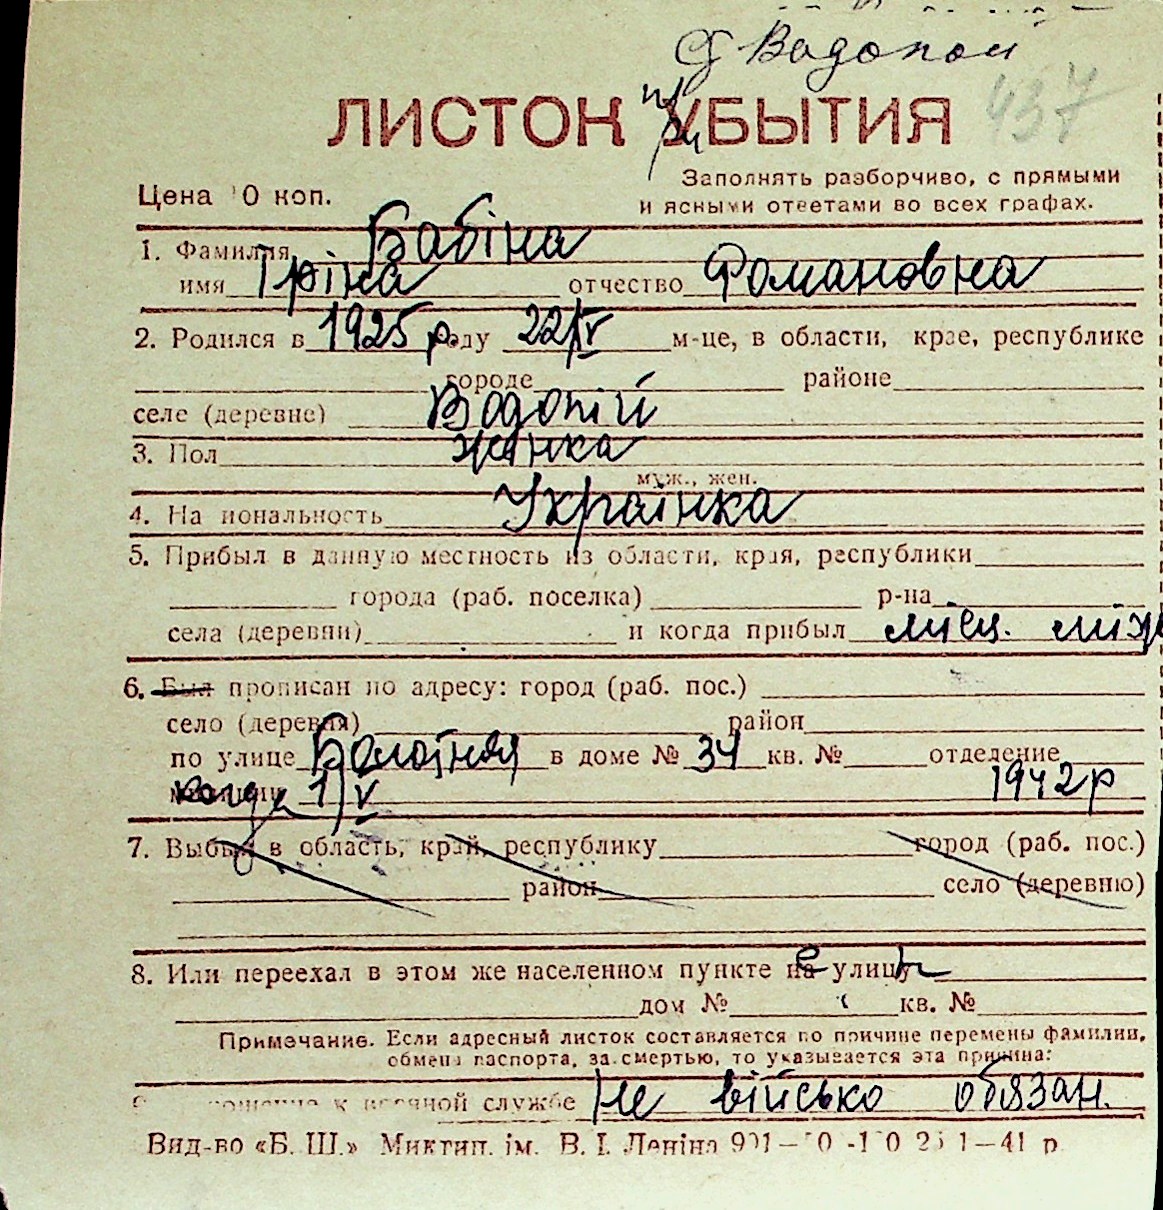 с Водопой
ЛИСТОК при УБЫТИЯ 437
Заполнять разборчиво, с прямыми
Цена 10 коп. и ясными ответами во всех графах.
1. Фамилия Бабіна
имя Іріна отчество Романовна
2. Родился в 1925 р. году 22/V м-це, в области, крае, республике
городе районе
селе (деревне) Водопій
3. Пол жінка
муж., жен.
4. Национальность Українка
5. Прибыл в данную местность из области, края, республики
города (раб. поселка) р-на
села (деревни) и когда прибыл місц. жит
6. Был прописан по адресу: город (раб. пос.)
село (деревня) район
по улице Болотная в доме № 34 кв. № отделение
когда 1/V 1942 р
7. Выбыл в область, край, республику город (раб. пос.)
район село (деревню)
8. Или переехал в этом же населенном пункте на улицу
дом № кв. №
Примечание. Если адресный листок составляется по причине перемены фамилии,
обмена паспорта, за смертью, то указывается эта причина:
к военной службе Не військо обязан.
Вид-во «Б. Ш.» Миктип. ім. В. І. Леніна 1—41 р.